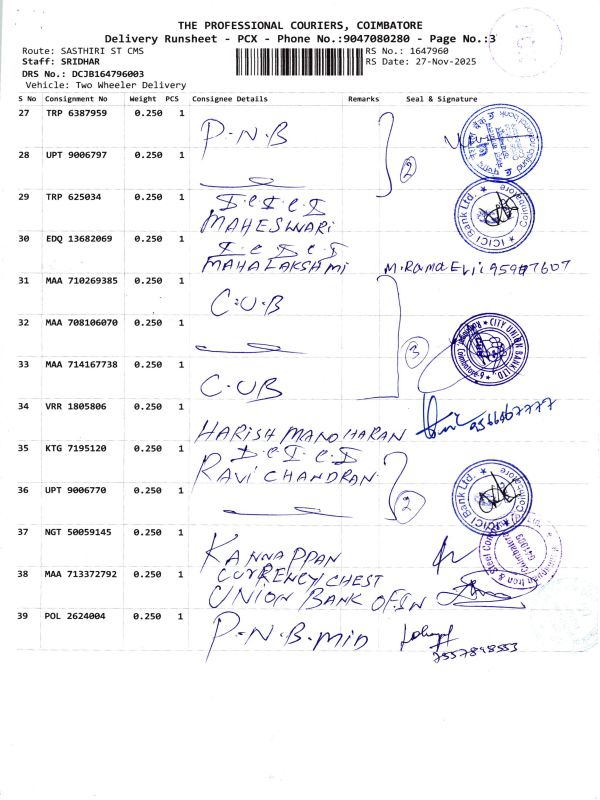 THE PROFESSIONAL COURIERS, COIMBATORE
Delivery Runsheet - PCX - Phone No.:9047080280 - Page No.:3
Route: SASTHIRI ST CMS RS No.: 1647960
Staff: SRIDHAR RS Date: 27-Nov-2025
DRS No.: DCJB164796003
Vehicle: Two Wheeler Delivery
S No Consignment No Weight PCS Consignee Details Remarks Seal & Signature
27 TRP 6387959 0.250 1
P-N-B
28 UPT 9006797 0.250 1
2
29 TRP 625034 0.250 1
I.C.I.C.I
MAHESWARI
ICICI Bank Ltd. Coimbatore
30 EDQ 13682069 0.250 1
I.C.I.C.I
MAHALAKSHMI
31 MAA 710269385 0.250 1
C.U.B
32 MAA 708106070 0.250 1
3
CITY UNION BANK LTD.
33 MAA 714167738 0.250 1
C-UB
34 VRR 1805806 0.250 1
HARISH MANOHARAN
35 KTG 7195120 0.250 1
I.C.I.C.I
RAVICHANDRAN
36 UPT 9006770 0.250 1
2
ICICI Bank Ltd. Coimbatore
37 NGT 50059145 0.250 1
KANNAPPAN
38 MAA 713372792 0.250 1
CURRENCY CHEST
UNION BANK OF IN
39 POL 2624004 0.250 1
P-N.B.MID